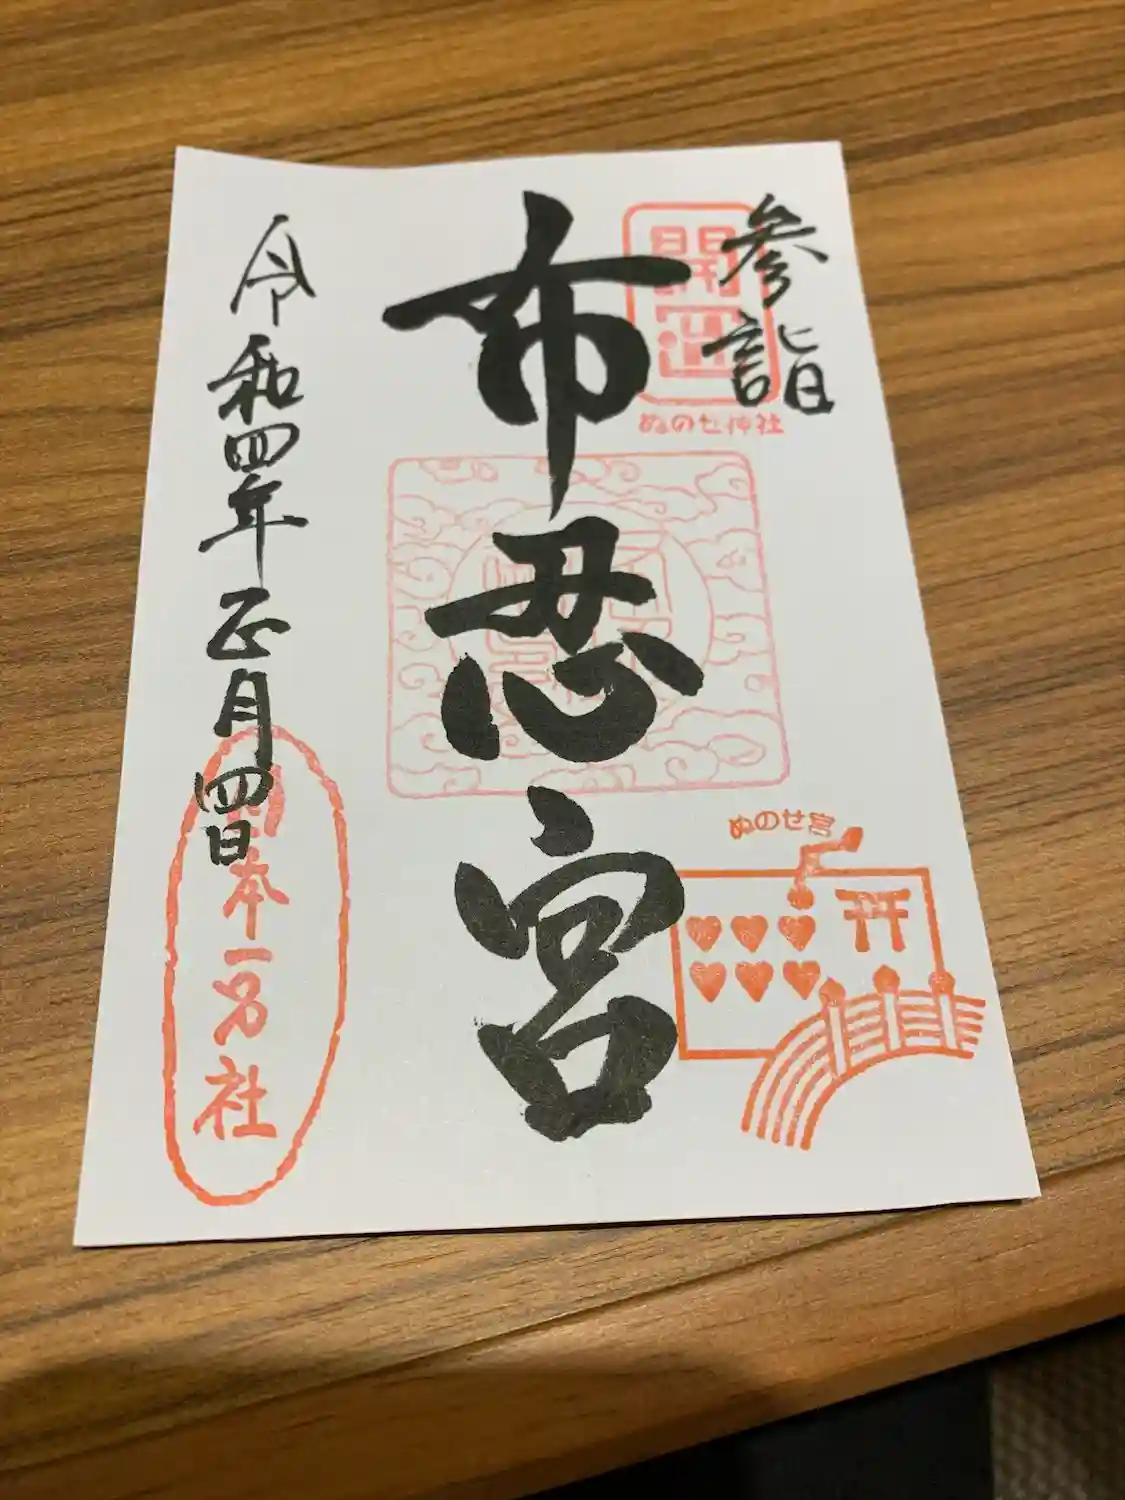 参詣
開運
ぬのせ神社
布忍宮
ぬのせ宮
令和四年正月四日
日本一宮社